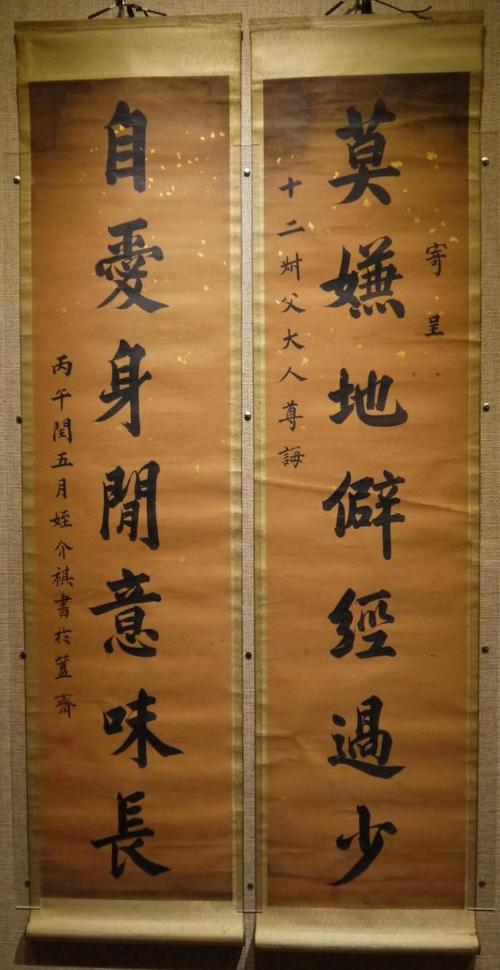 寄呈
莫嫌地僻經過少
十二叔父大人尊誨
自愛身閒意味長
丙午閏五月姪介祺書於簠齋